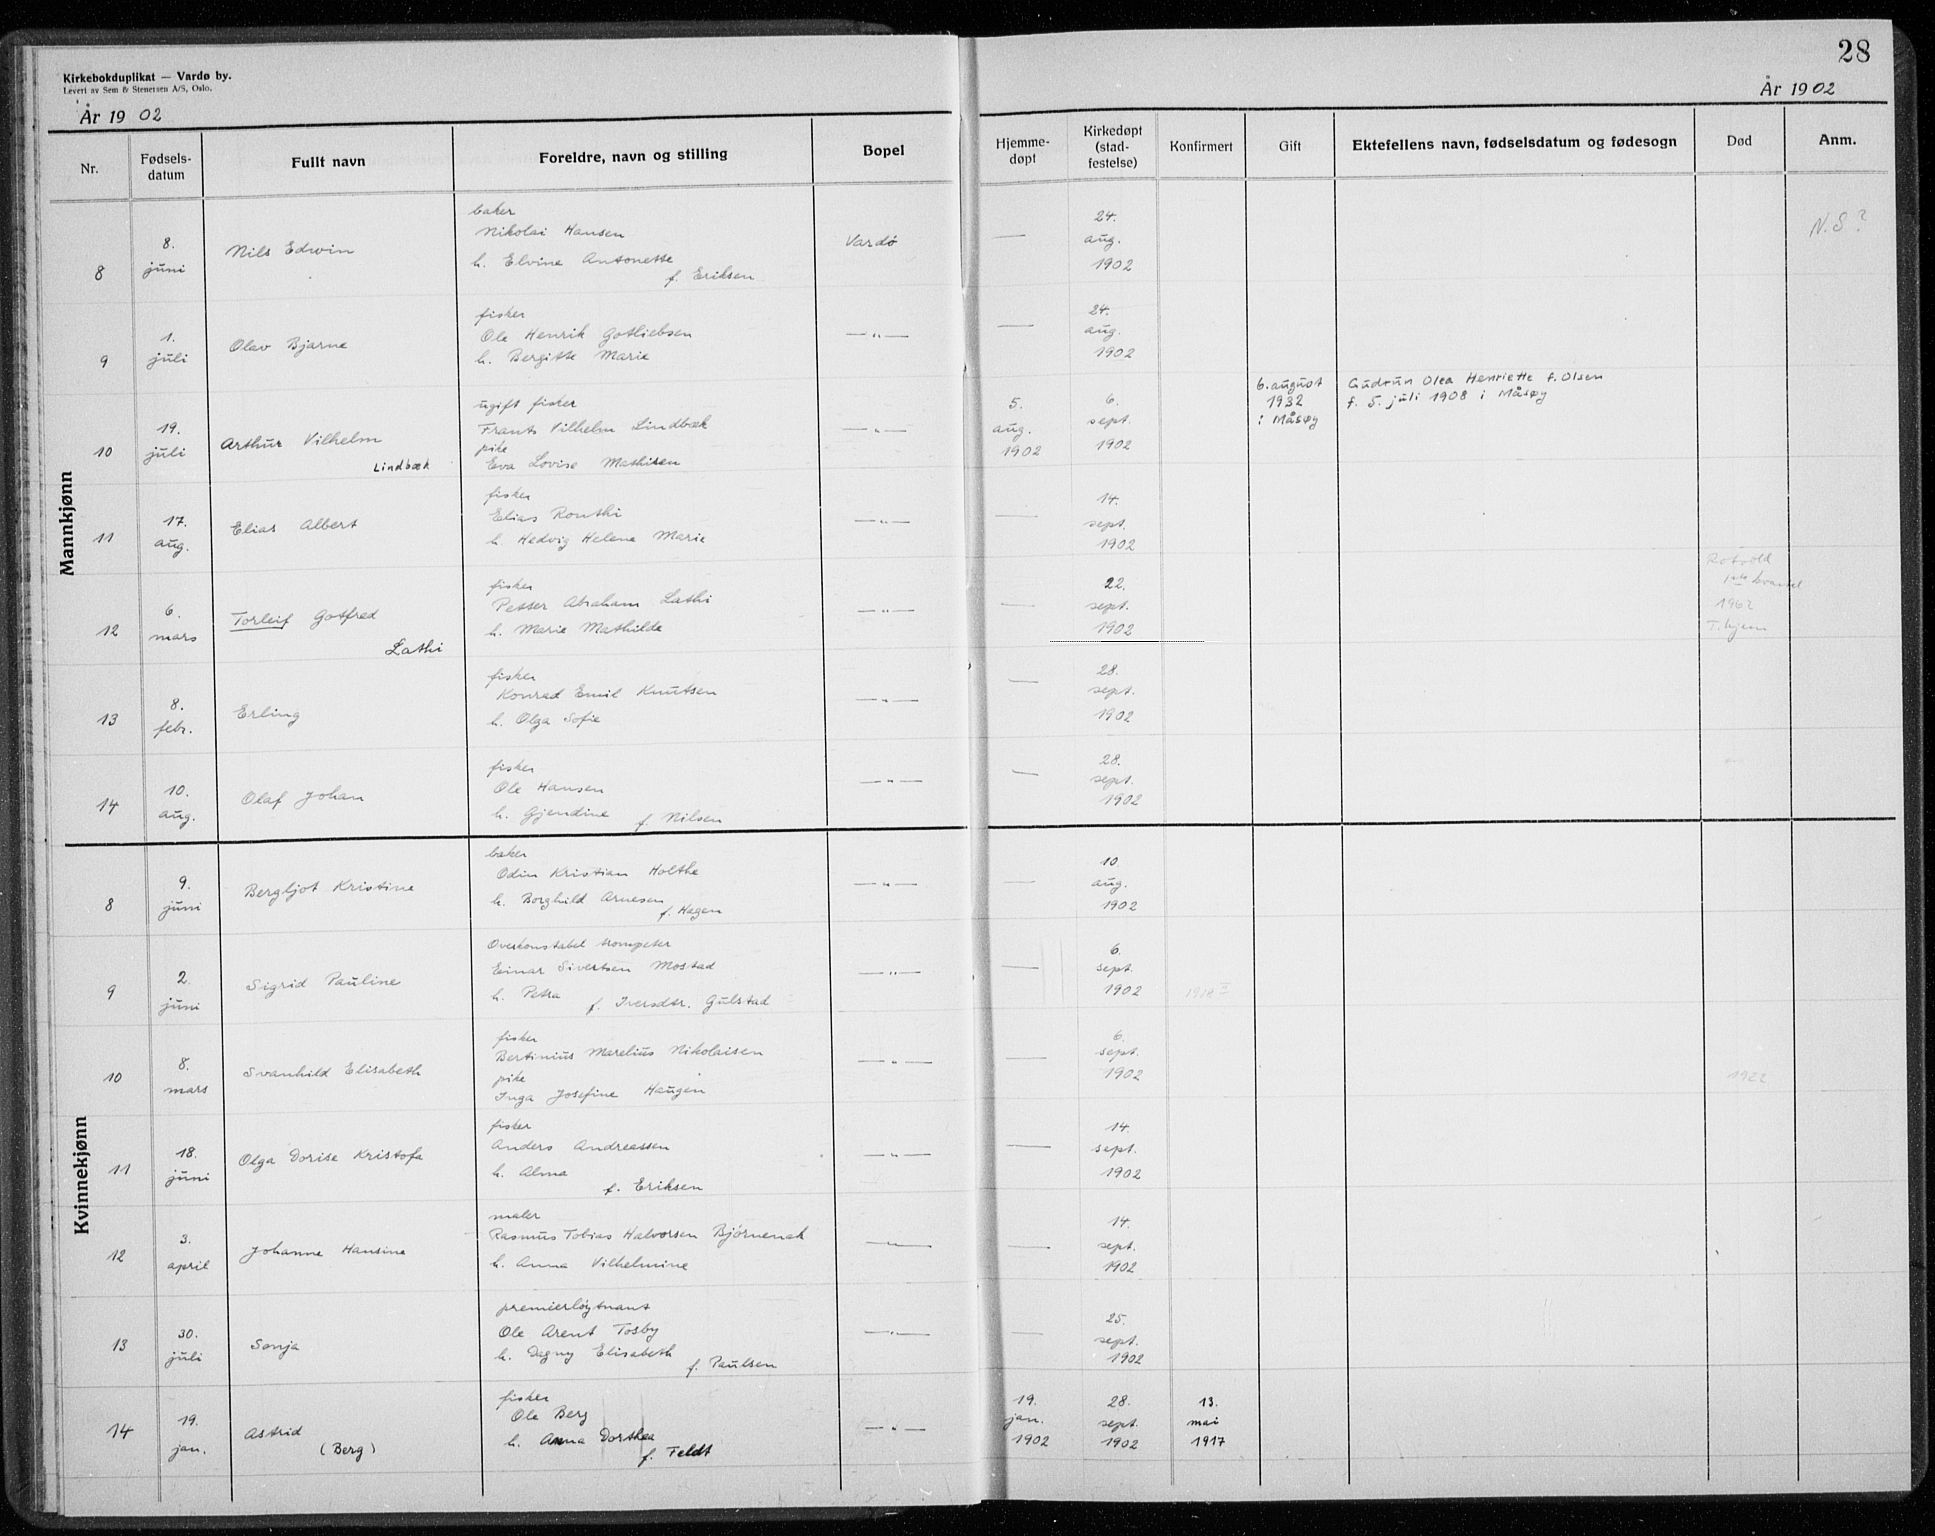 28
Kirkebokduplikat — Vardø by.
Levert av Sem & Stenersen A/S, Oslo.
År 1902
År 1902
Nr.
Fødsels-
datum
Fullt navn
Foreldre, navn og stilling
Bopel
Hjemme-
døpt
Kirkedøpt
(stad-
festelse)
Konfirmert
Gift
Ektefellens navn, fødselsdatum og fødesogn
Død
Anm.
Mannkjønn
8
8.
juni
Nils Edwin
baker
Nikolai Hansen
h. Elvine Antonette
f. Eriksen
Vardö
—
24.
aug.
1902
N.S?
9
1.
juli
Olav Bjarne
fisker
Ole Henrik Gotliebsen
h. Bergitte Marie
— " —
—
24.
aug.
1902
10
19.
juli
Arthur Vilhelm
Lindbæk
ugift fisker
Frants Vilhelm Lindbæk
pike
Eva Lovise Mathisen
— " —
5.
aug.
1902
6.
sept.
1902
6. august
1932
i Måsøy
Gudrun Olea Henriette f. Olsen
f. 5. juli 1908 i Måsøy
11
17.
aug.
Elias Albert
fisker
Elias Routhi
h. Hedvig Helene Marie
— " —
—
14.
sept.
1902
12
6.
mars
Torleif Gotfred
Lathi
fisker
Petter Abraham Lathi
h. Marie Mathilde
— " —
—
22.
sept.
1902
Rotvold
1962
T.hjem
13
8.
febr.
Erling
fisker
Konrad Emil Knutsen
h. Olga Sofie
— " —
—
28.
sept.
1902
14
10.
aug.
Olaf Johan
fisker
Ole Hansen
h. Gjendine f. Nilsen
— " —
—
28.
sept.
1902
Kvinnekjønn
8
9.
juni
Bergljot Kristine
baker
Odin Kristian Holthe
h. Borghild Arnesen
f. Hagen
— " —
—
10.
aug.
1902
9
2.
juni
Sigrid Pauline
Overkonstabel trompeter
Einar Sivertsen Mostad
h. Petra f. Iversdtr. Gulstad
— " —
—
6.
sept.
1902
10
8.
mars
Svanhild Elisabeth
fisker
Bertinius Marelius Nikolaisen
pike
Inga Josefine Haugen
— " —
—
6.
sept.
1902
1922
11
18.
juni
Olga Dorise Kristofa
fisker
Anders Andreassen
h. Alma
f. Eriksen
— " —
—
14.
sept.
1902
12
3.
april
Johanne Hansine
maler
Rasmus Tobias Halvorsen Björnenak
h. Anna Vilhelmine
— " —
—
14.
sept.
1902
13
30.
juli
Sonja
premierløytnant
Ole Arent Tosby
h. Dagny Elisabeth
f. Paulsen
— " —
—
25.
sept.
1902
14
19.
jan.
Astrid
(Berg)
fisker
Ole Berg
h. Anna Dorthea
f. Feldt
— " —
19.
jan.
1902
28.
sept.
1902
13.
mai
1917